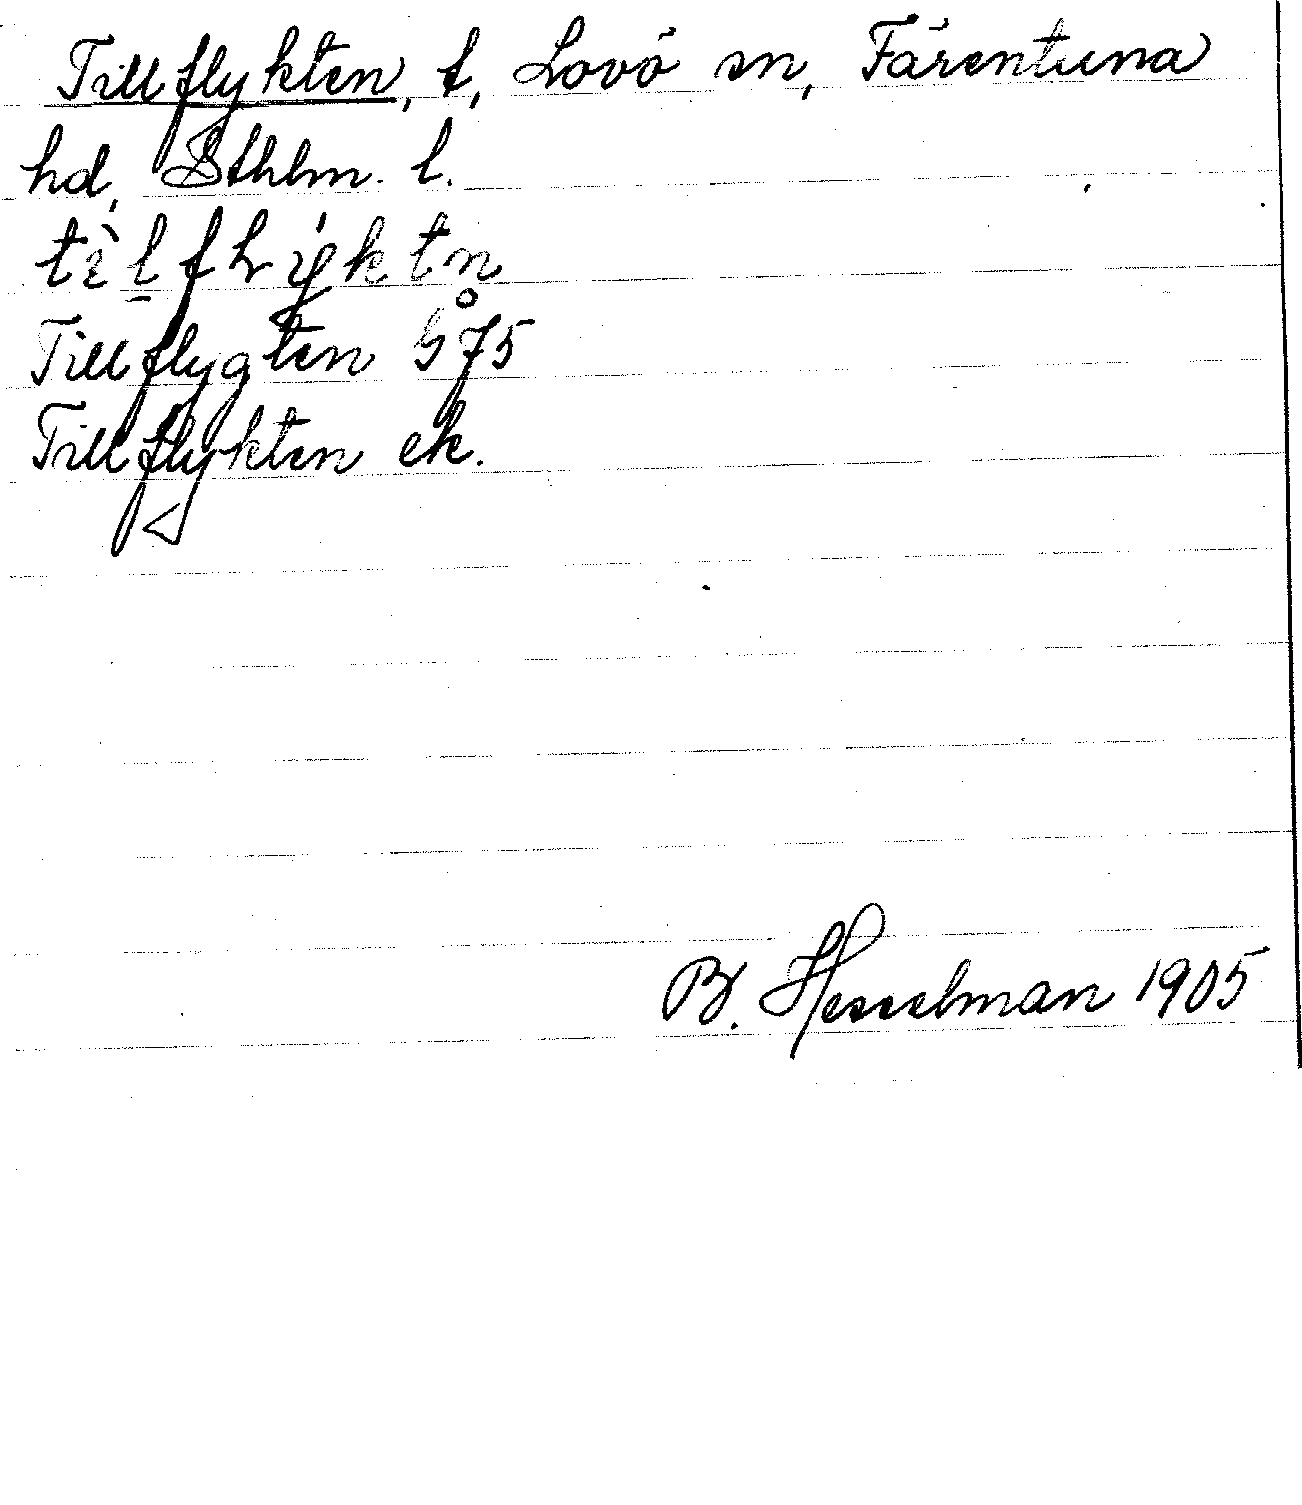 Tillflykten, t, Lovö sn, Färentuna
hd, Sthlm. l.
Tillflygten G 75
Tillflykten ek.
B. Hesselman 1905